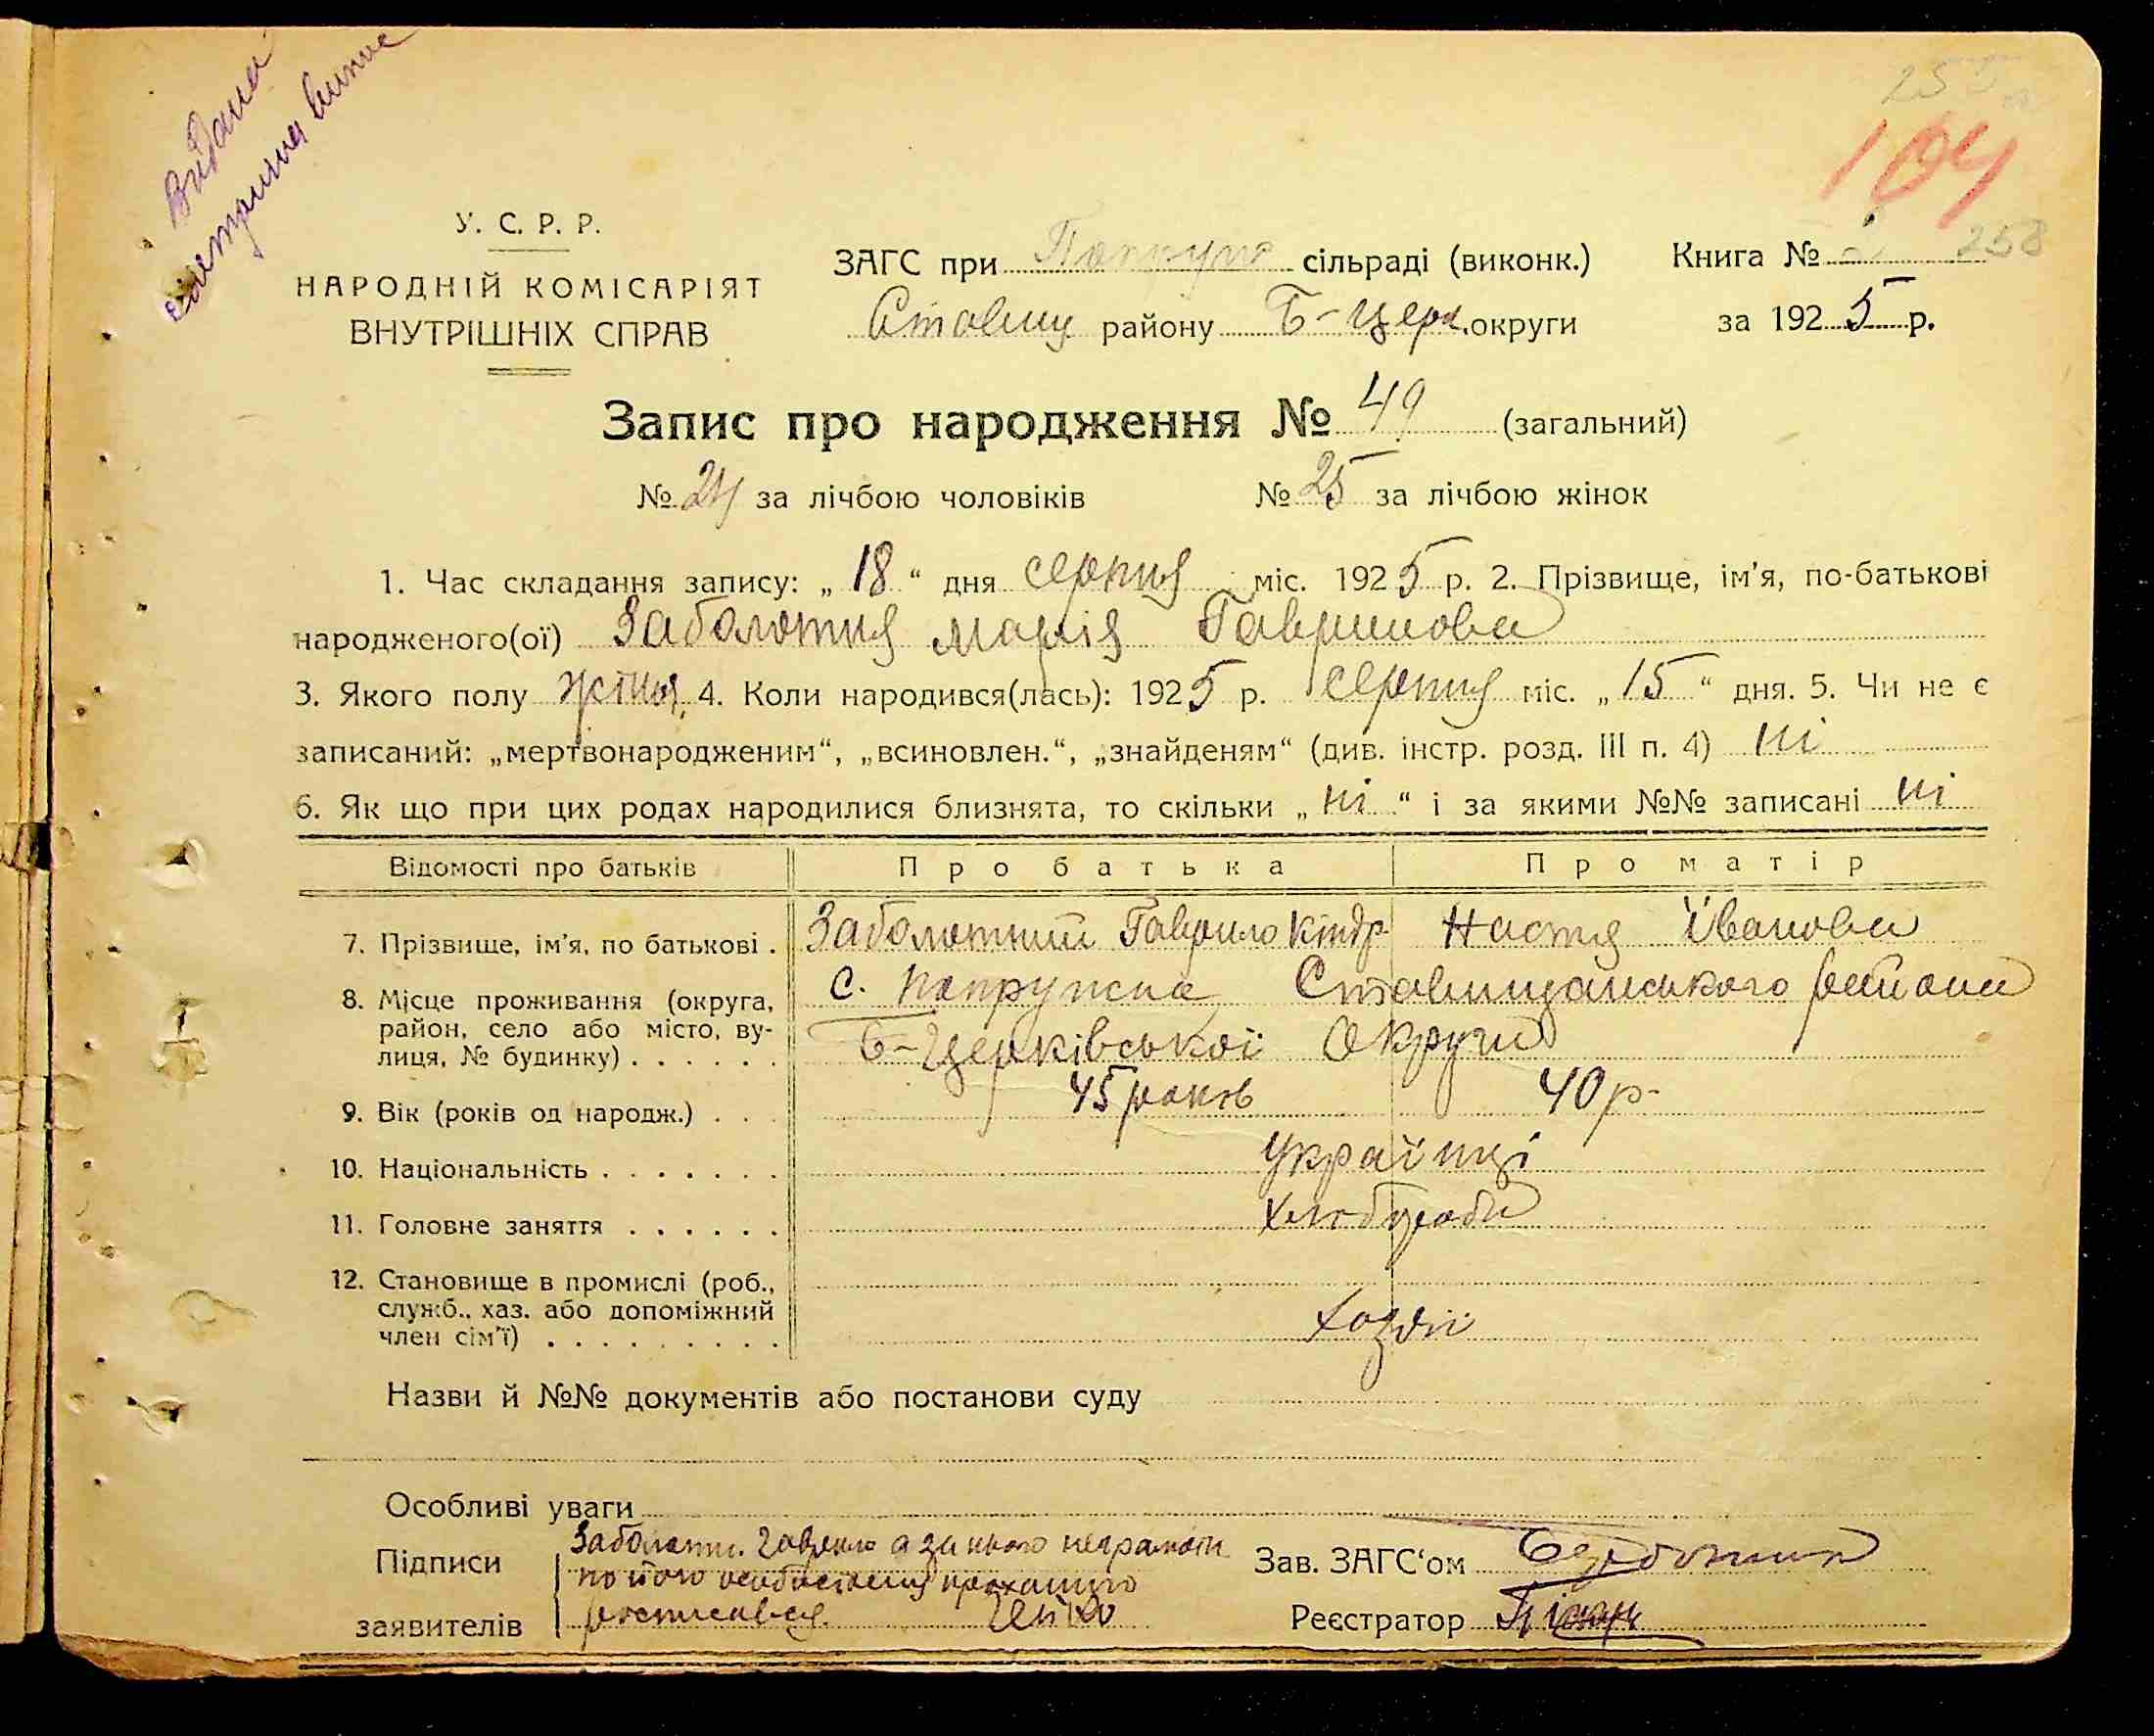 Видана
У. С. Р. Р.
НАРОДНІЙ КОМІСАРІЯТ
ВНУТРІШНІХ СПРАВ
ЗАГС при сільраді (виконк.)
Ставищ району Б-Церк. округи
Книга № 258
за 1925 р.
104
Запис про народження № 49 (загальний)
№ 24 за лічбою чоловіків № 25 за лічбою жінок
1. Час складання запису: „ 18 “ дня серпня міс. 1925 р. 2. Прізвище, ім'я, по-батькові
народженого(ої) Заболотня Марія Гаврилова
3. Якого полу жіноч. 4. Коли народився(лась): 1925 р. серпня міс. „ 15 “ дня. 5. Чи не є
записаний: „мертвонародженим“, „всиновлен.“, „знайденям“ (див. інстр. розд. III п. 4) ні
6. Як що при цих родах народилися близнята, то скільки „ ні “ і за якими №№ записані ні
Відомості про батьків Про батька Про матір
7. Прізвище, ім'я, по батькові . Заболотний Гаврило Кіндр Настя Йванова
8. Місце проживання (округа, район, село або місто, вулиця, № будинку) . . . . . . с. Попружна Ставищанського района
Б-Церківської Округи
9. Вік (років од народж.) . . . 45 роков 40 р-
10. Національність . . . . . . . Українці
11. Головне заняття . . . . . . Хлібороби
12. Становище в промислі (роб.,
служб., хаз. або допоміжний
член сім'ї) . . . . . . . . . Хозяї
Назви й №№ документів або постанови суду
Особливі уваги
Підписи
заявителів
Заболотн. Гаврило а за нього неграмотн
по його особистому проханню
росписався.
Зав. ЗАГС‘ом
Реєстратор